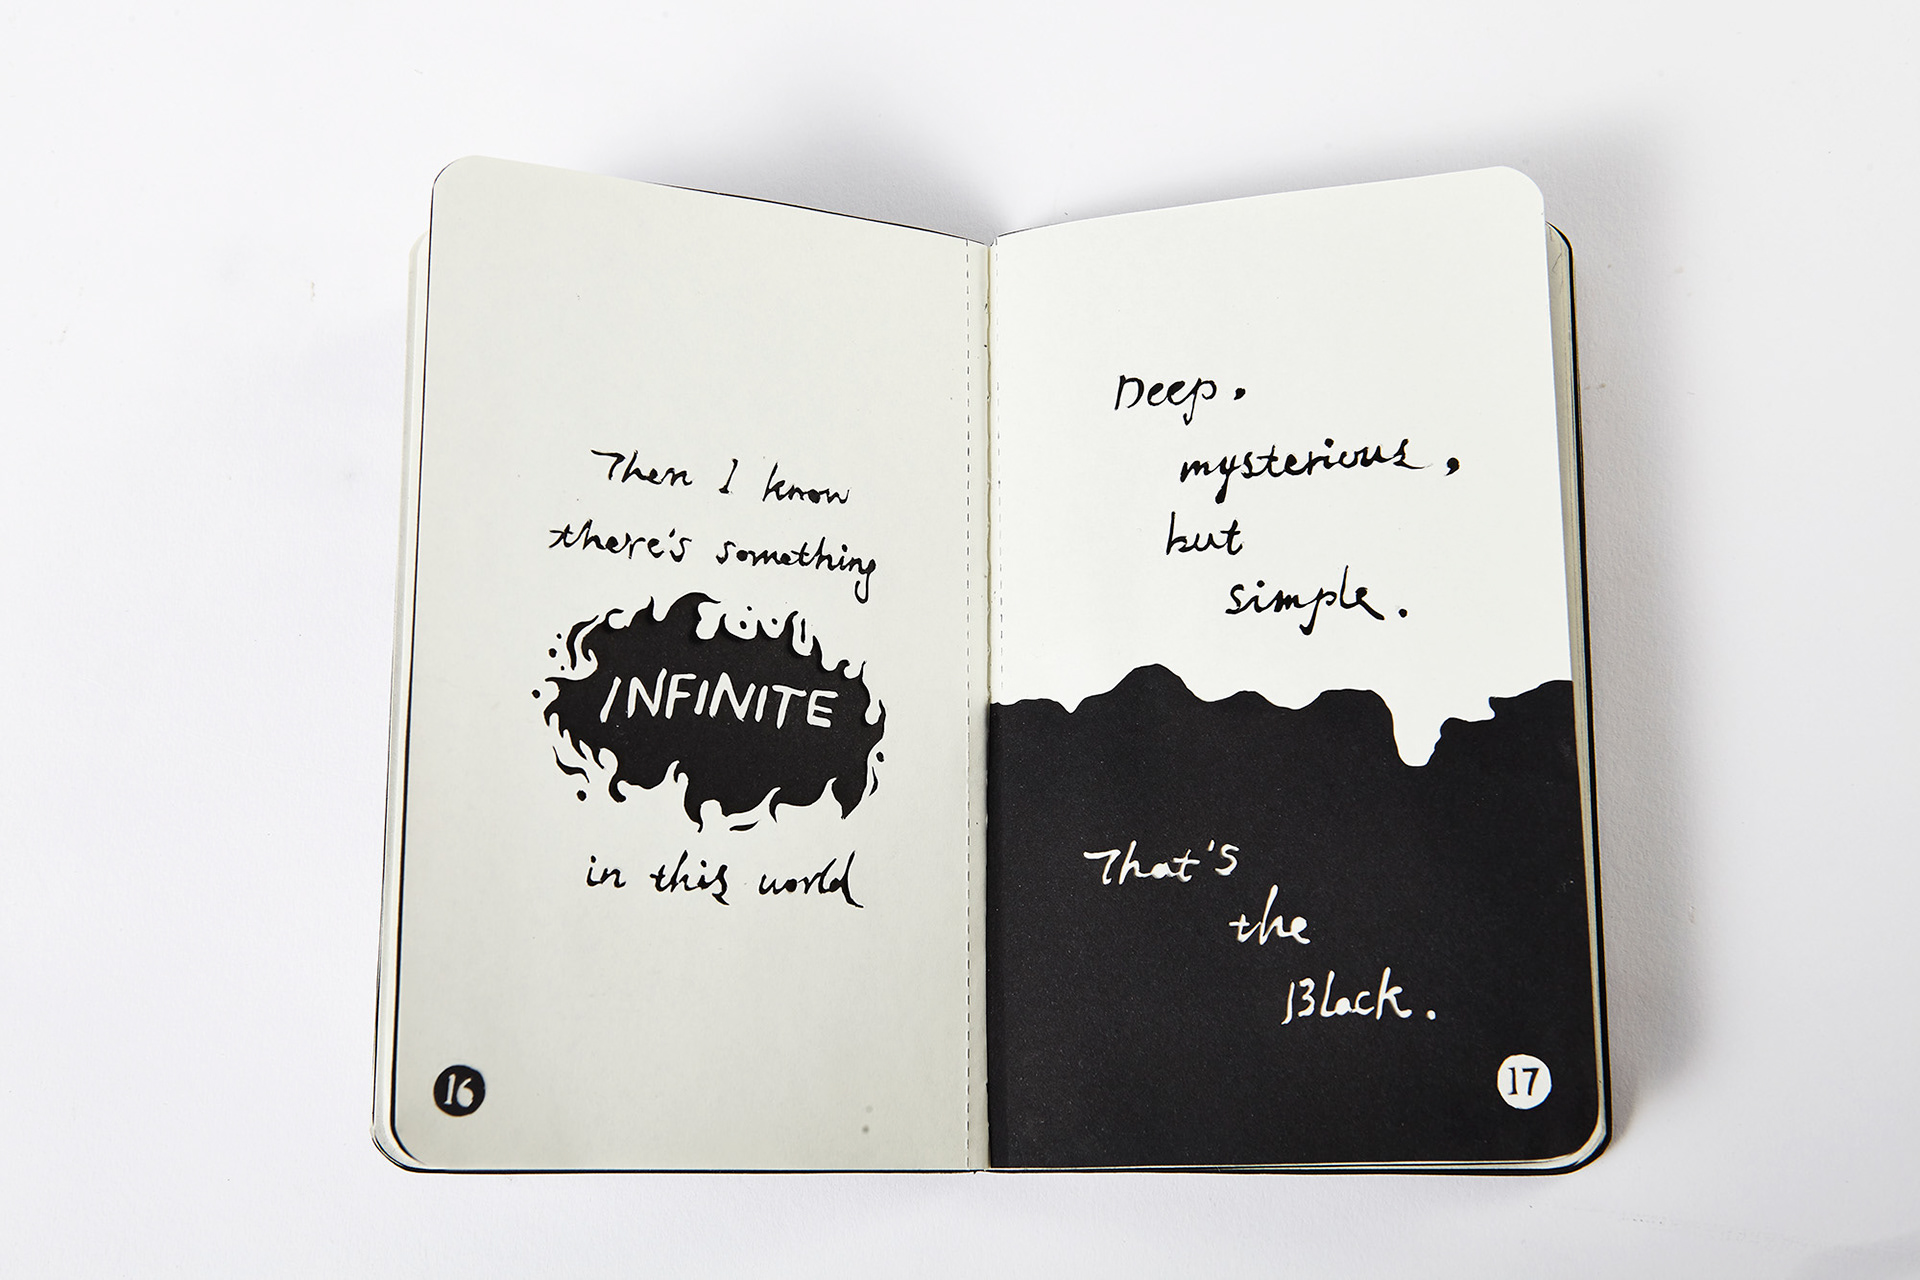 Then I know
there's something
INFINITE
in this world
16
Deep.
mysterious,
but
simple.
That's
the
Black.
17